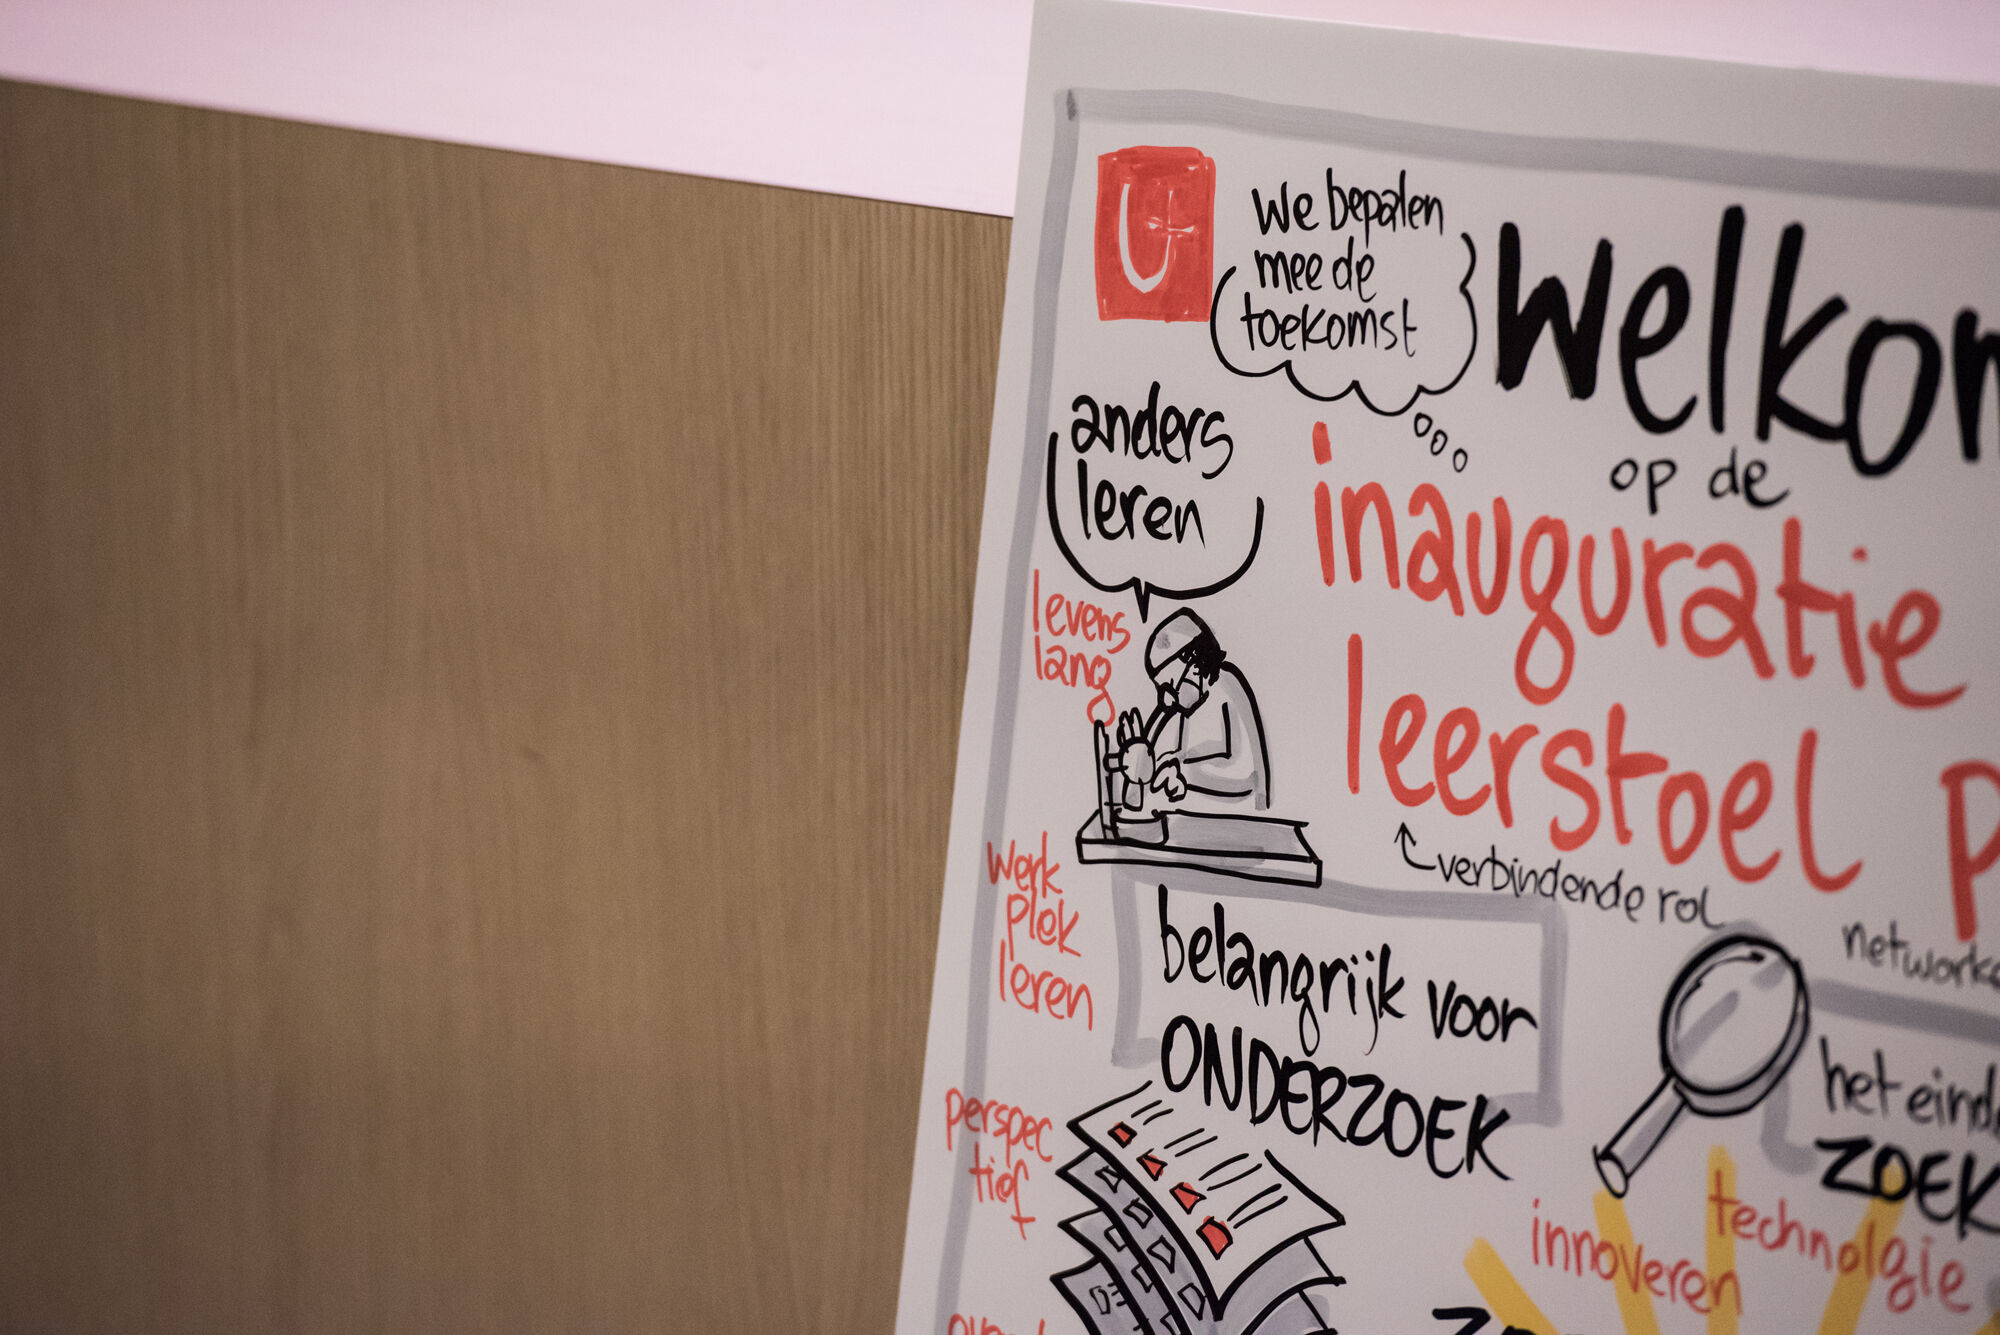 We bepalen
mee de
toekomst
welkom
op de
inauguratie
leerstoel
anders
leren
levens
lang
verbindende rol
werk
plek
leren
belangrijk voor
ONDERZOEK
perspec
tief
het
ZOEK
technolgie
innoveren